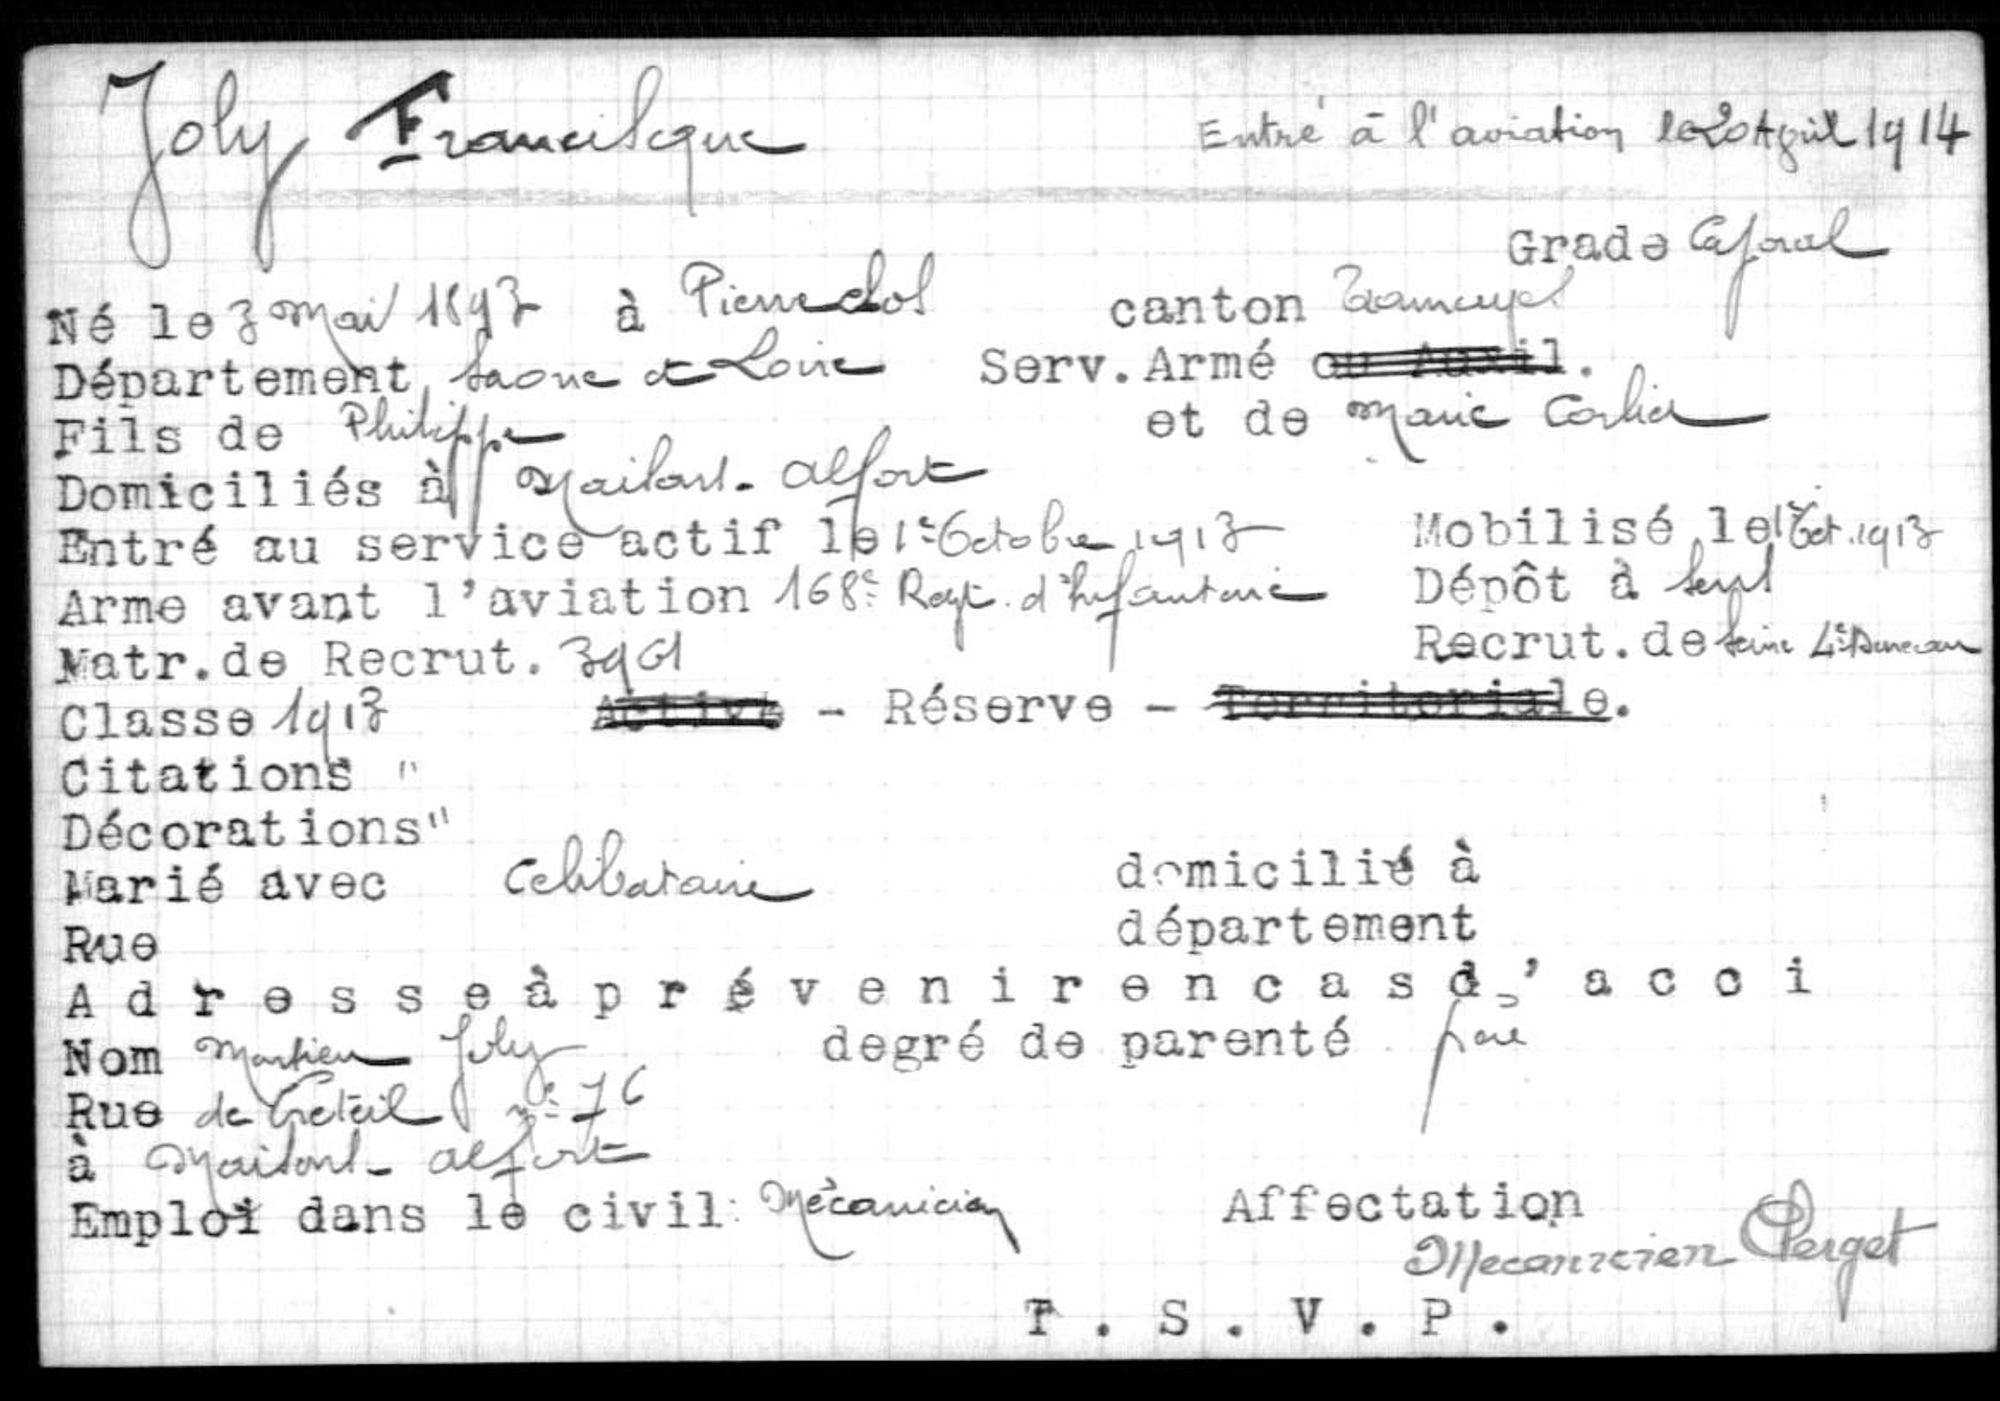 Joly Francisque Entré à l'aviation le 20 April 1914
Grade Caporal
Né le 3 Mai 1893 à Pierreclos canton Tramayes
Département Saone et Loire Serv. Armé ou Auxil.
Fils de Philippe et de Marie Corlier
Domiciliés à Maisons-Alfort
Entré au service actif le 1e Octobre 1913 Mobilisé le 1er Oct. 1913
Arme avant l'aviation 168e Regt. d'Infanterie Dépôt à Sens
Matr. de Recrut. 3901 Recrut. de Seine 4e Bureau
Classe 1913 Active - Réserve - Territoriale.
Citations "
Décorations "
Marié avec Celibataire domicilié à
Rue département
Adresse à prévenir en cas d'acci
Nom Monsieur Joly degré de parenté père
Rue de Creteil No 76
à Maisons-Alfort
Emploi dans le civil: Mécanicien Affectation
Mecanicien Clerget
T.S.V.P.